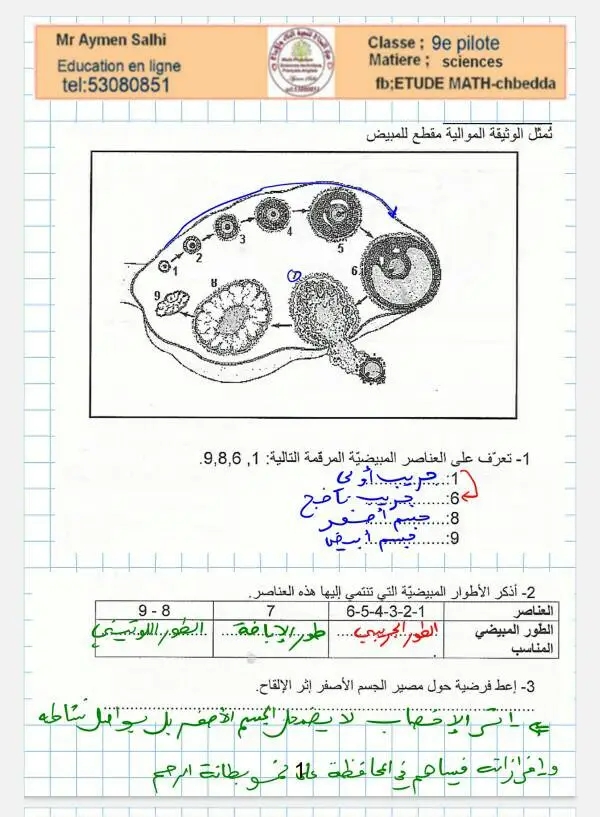 Mr Aymen Salhi
Education en ligne
tel:53080851
Classe ; 9e pilote
Matiere ; sciences
fb;ETUDE MATH-chbedda
تُمثّل الوثيقة الموالية مقطع للمبيض
1
2
3
4
5
6
7
8
9
1- تعرّف على العناصر المبيضيّة المرقمة التالية: 1, 9,8,6.
1:جريب أولي
6:جريب ناضج
8:جسم أصفر
9:جسم أبيض
2- أذكر الأطوار المبيضيّة التي تنتمي إليها هذه العناصر.
العناصر 6-5-4-3-2-1 7 9 - 8
الطور المبيضي المناسب الطور الجريبي طور الإباضة الطور اللوتييني
3- إعط فرضية حول مصير الجسم الأصفر إثر الإلقاح.
إثر الإخصاب لا يضمحل الجسم الأصفر بل يواصل نشاطه
وإفرازاته فيساهم في المحافظة على نمو بطانة الرحم
1